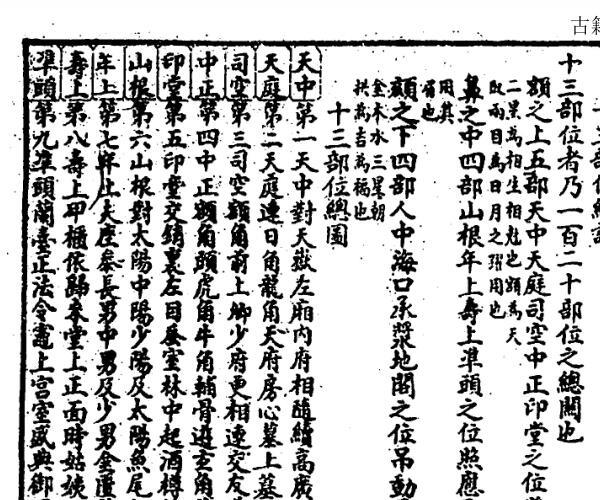 古籍
十三部位總
十三部位者乃一百二十部位之總關也
額之上五部天中天庭司空中正印堂之位
二景為相生相尅也額為天
故兩目為日月之躍用也
鼻之中四部山根年上壽上準頭之位照應
用其
眉也
額之下四部人中海口承漿地閣之位吊動
金木水三星朝
拱為吉為福也
十三部位總圖
天中第一天中對天嶽左廂內府相隨續高廣
天庭第二天庭連日角龍角天府房心墓上墓
司空第三司空額角前上卿少府更相連交友
中正第四中正額角頭虎角牛角輔骨邊玄角
印堂第五印堂交鎖裏左目蠶室林中起酒樽
山根第六山根對太陽中陽少陽及太陽魚尾
年上第七年上夫座參長男中男及少男金匱
壽上第八壽上甲櫃依歸來堂上正面時姑姨
準頭第九準頭蘭臺正法令竈上宮室盛典御